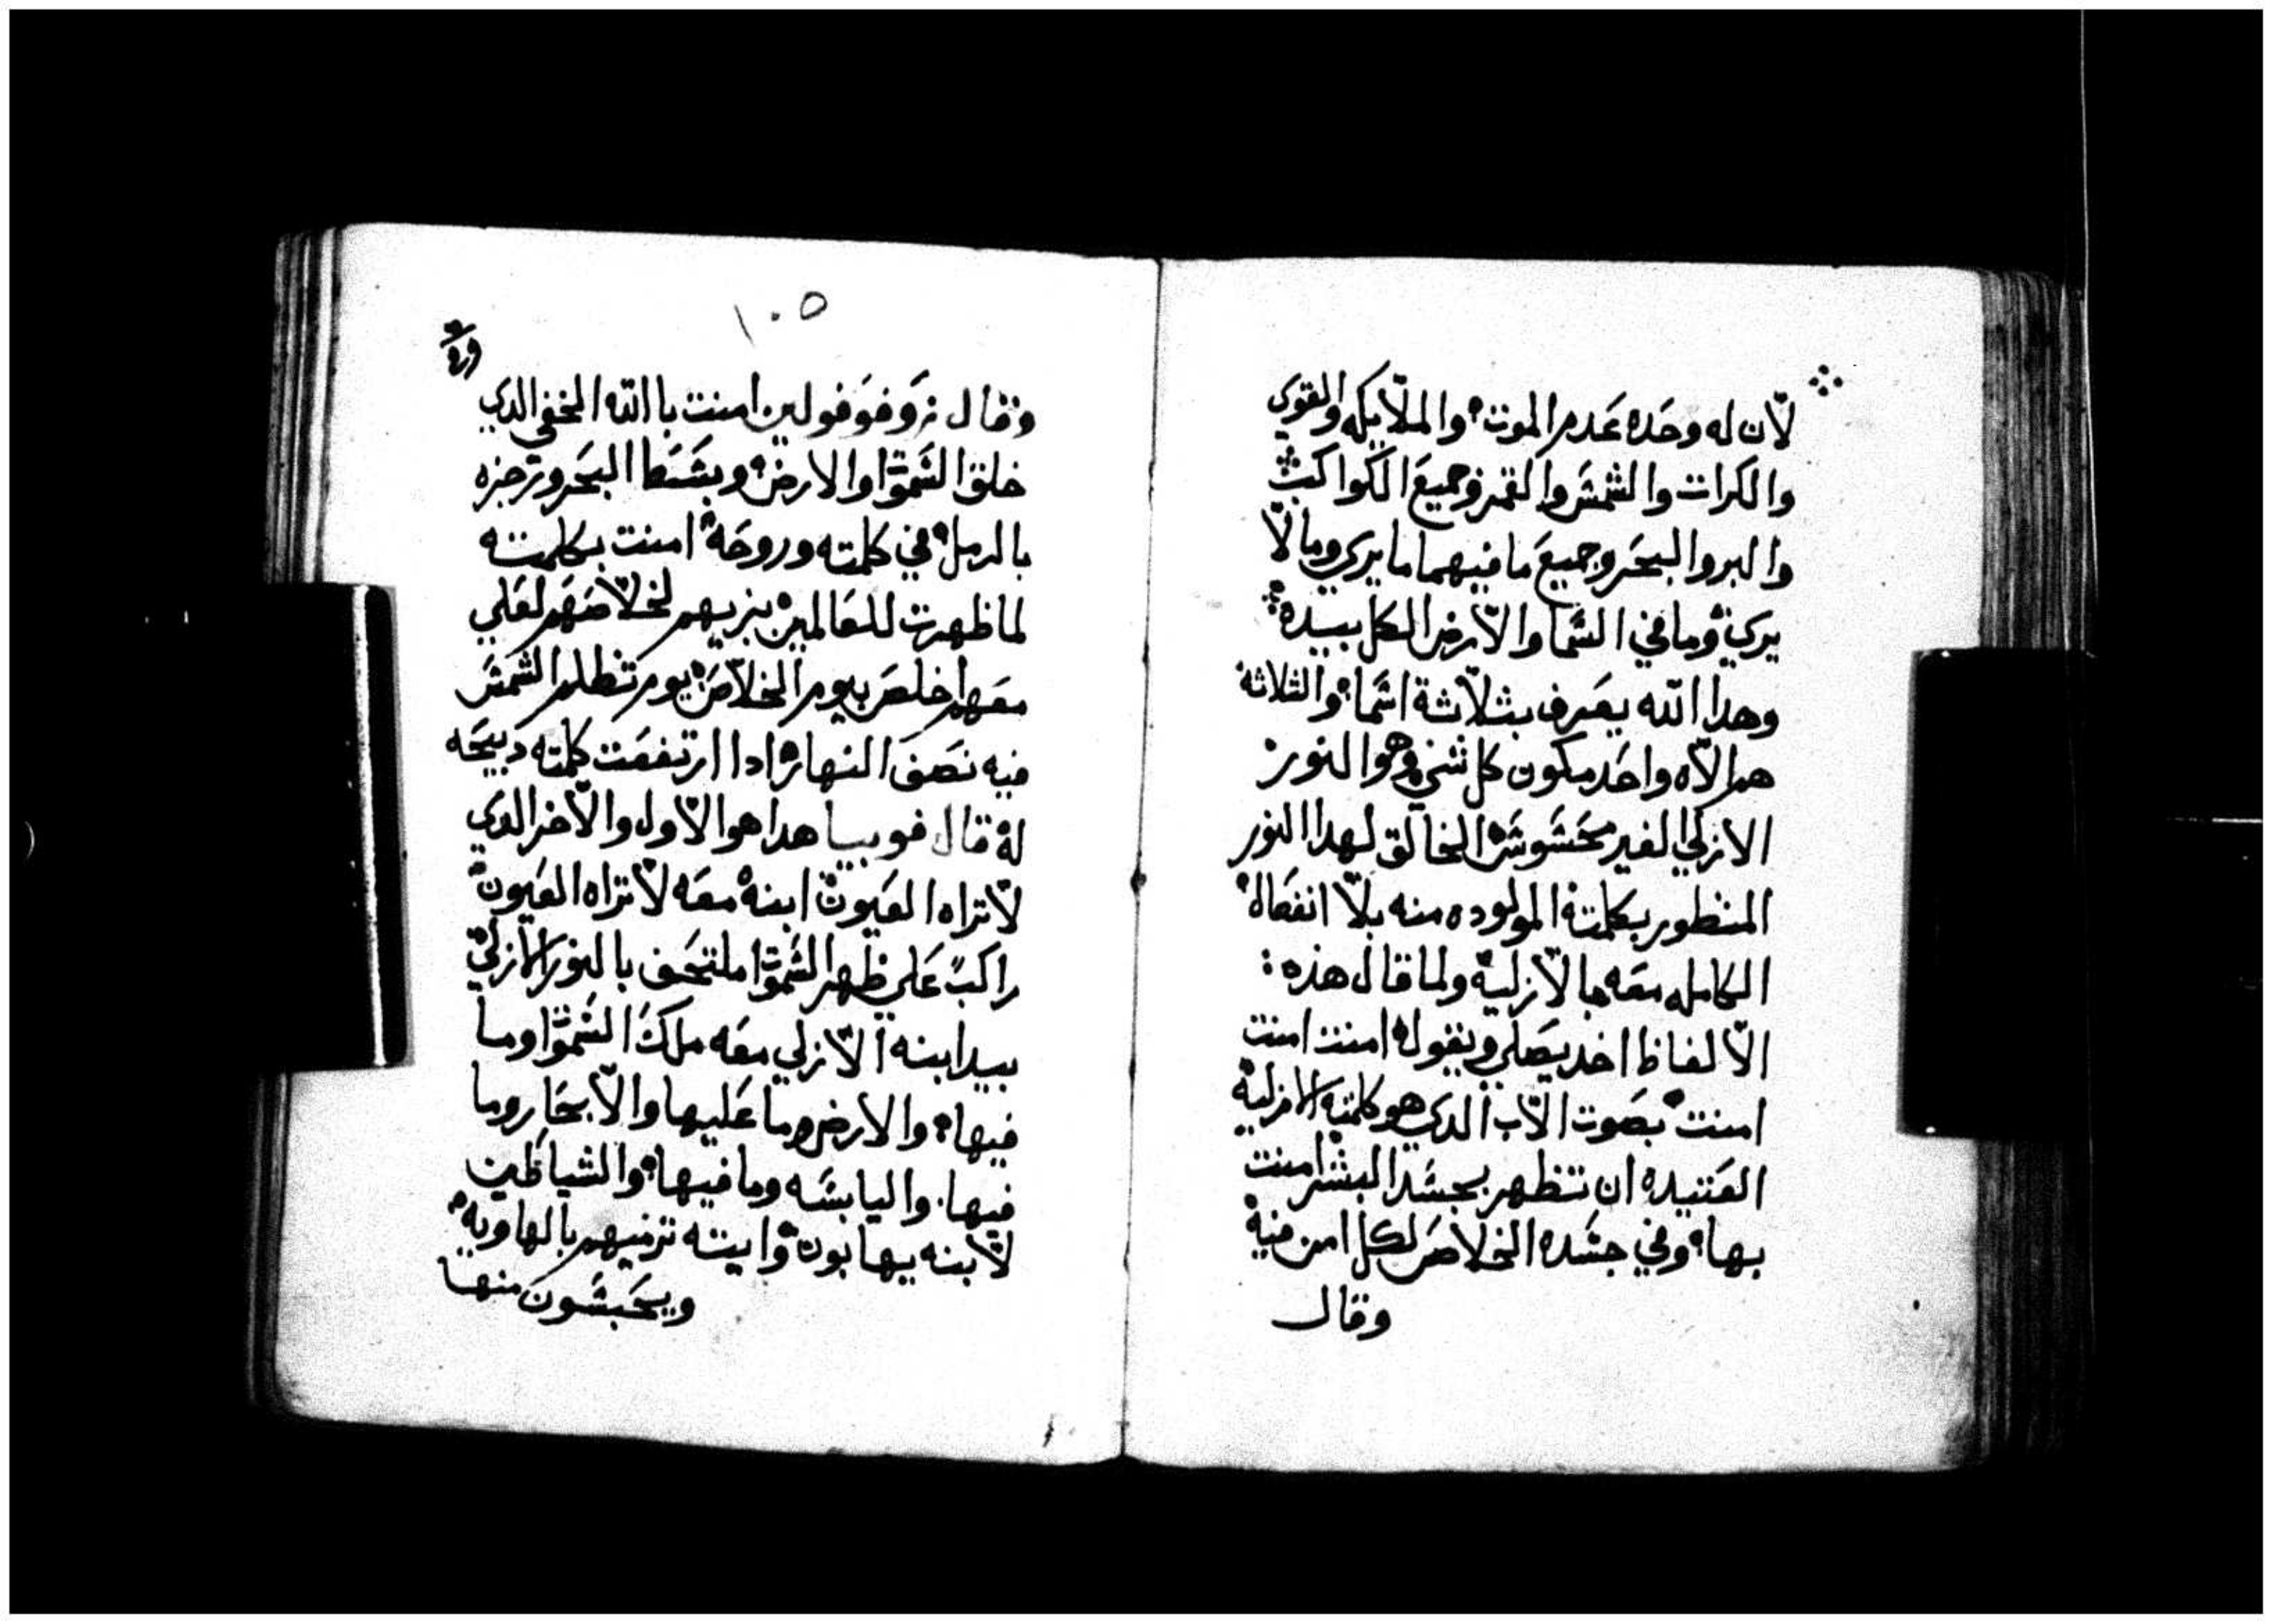 لأن له وحده عدم الموت والملايكه والقوي
والكرات والشمس والقمر وجميع الكواكب
والبر والبحر وجميع ما فيهما ما يري وما لا
يري وما في السما والارض الكل بيده
وهدا الله يعرف بثلاثة اسما والثلاثة
هم الاه واحد مكون كل شي وهو النور
الازلي الغير محسوس الخالق لهدا النور
المنظور بكلمته المولوده منه بلا انفصال
الكامله معه بالازلية ولما قال هذه
الالفاظ اخد يصلي ويقول امنت امنت
امنت بصوت الاب الدي هو كلمته الازلية
العتيده ان تظهر بجسد البشر امنت
بها وفي جسده الخلاص لكل امن فيه
وقال
١٠٥
وقال امنت باالله المخفي الدي
خلق السموا والارض وبسط البحر وترجزه
بالرمل في كلمته وروحه امنت بكلمته
لما ظهرت للعالمين بزيهم لخلاصهم لعلي
معهم اخلص بيوم الخلاص يوم تظلم الشمس
فيه نصف النهار ادا ارتفعت كلمته دبيحه
له قال فوبيا هدا هو الاول والاخر الدي
لا تراه العيون ابنه معه لا تراه العيون
راكب علي ظهر السموا ملتحف بالنور الازلي
بيد ابنه الازلي معه ملك السموا وما
فيها والارض وما عليها والابحار وما
فيها واليابسه وما فيها والشياطين
لابنه يهابون وايته ترميهم بالهاويه
ويحبسون منها